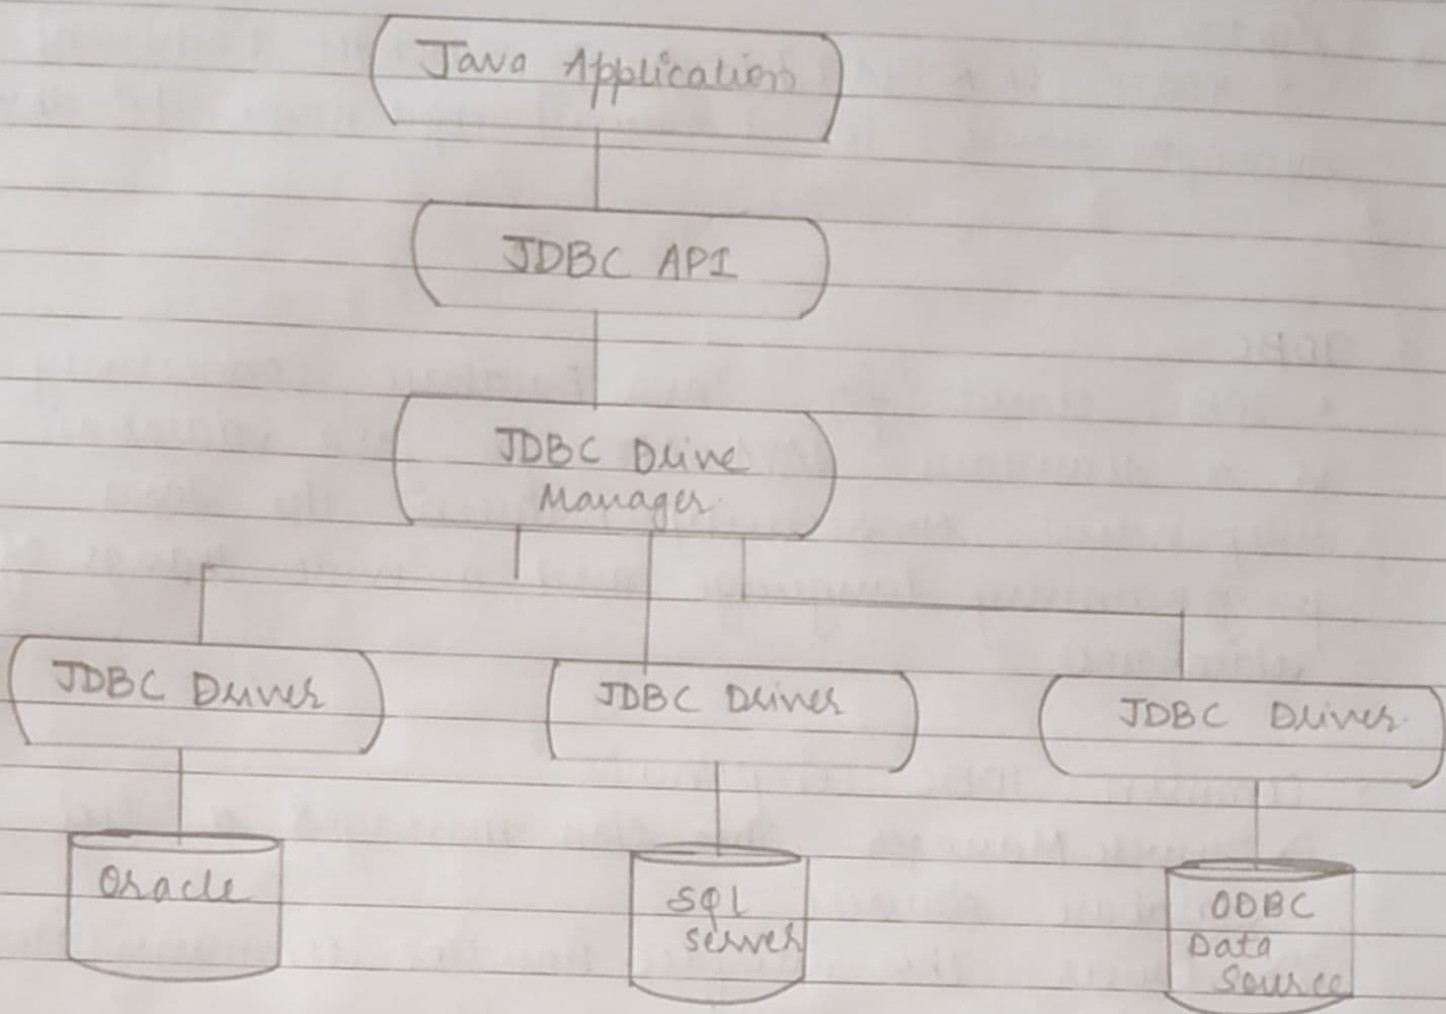 Java Application
JDBC API
JDBC Drive
Manager
JDBC Driver
JDBC Driver
JDBC Driver
Oracle
SQL
Server
ODBC
Data
Source